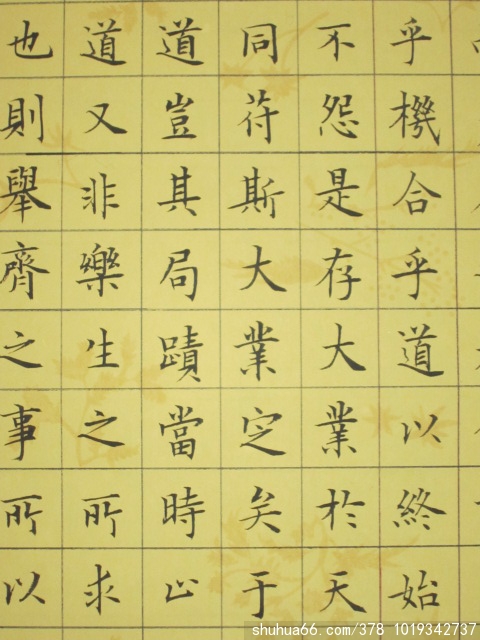 乎機合乎道以終始
不怨是存大業於天
同符斯大業定矣于
道豈其局蹟當時止
道又非樂生之所求
也則舉齊之事所以
shuhua66.com/378 1019342737